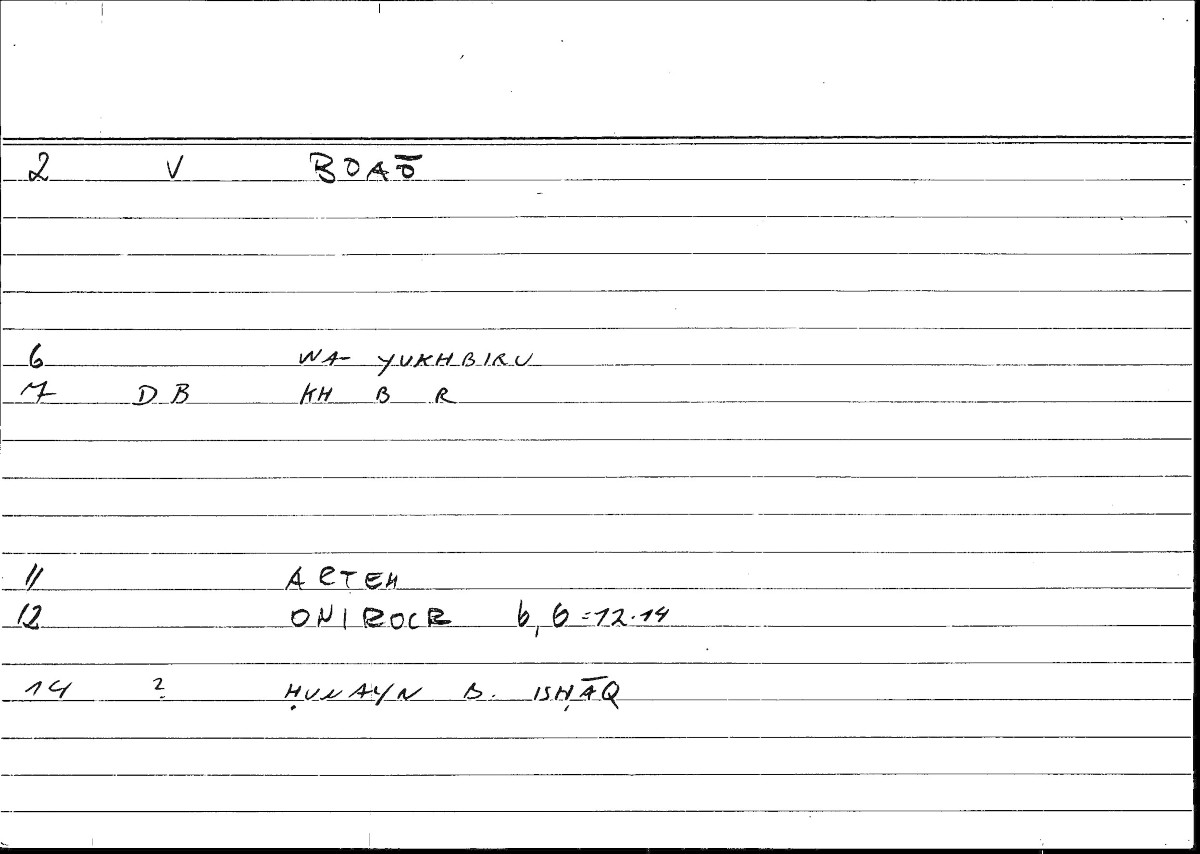 2 V BOAŌ
6 WA- YUKHBIRU
7 DB KH B R
11 ARTEM
12 ONIROCR 6, 6 = 12.14
14 ? ḤUNAYN B. ISḤĀQ